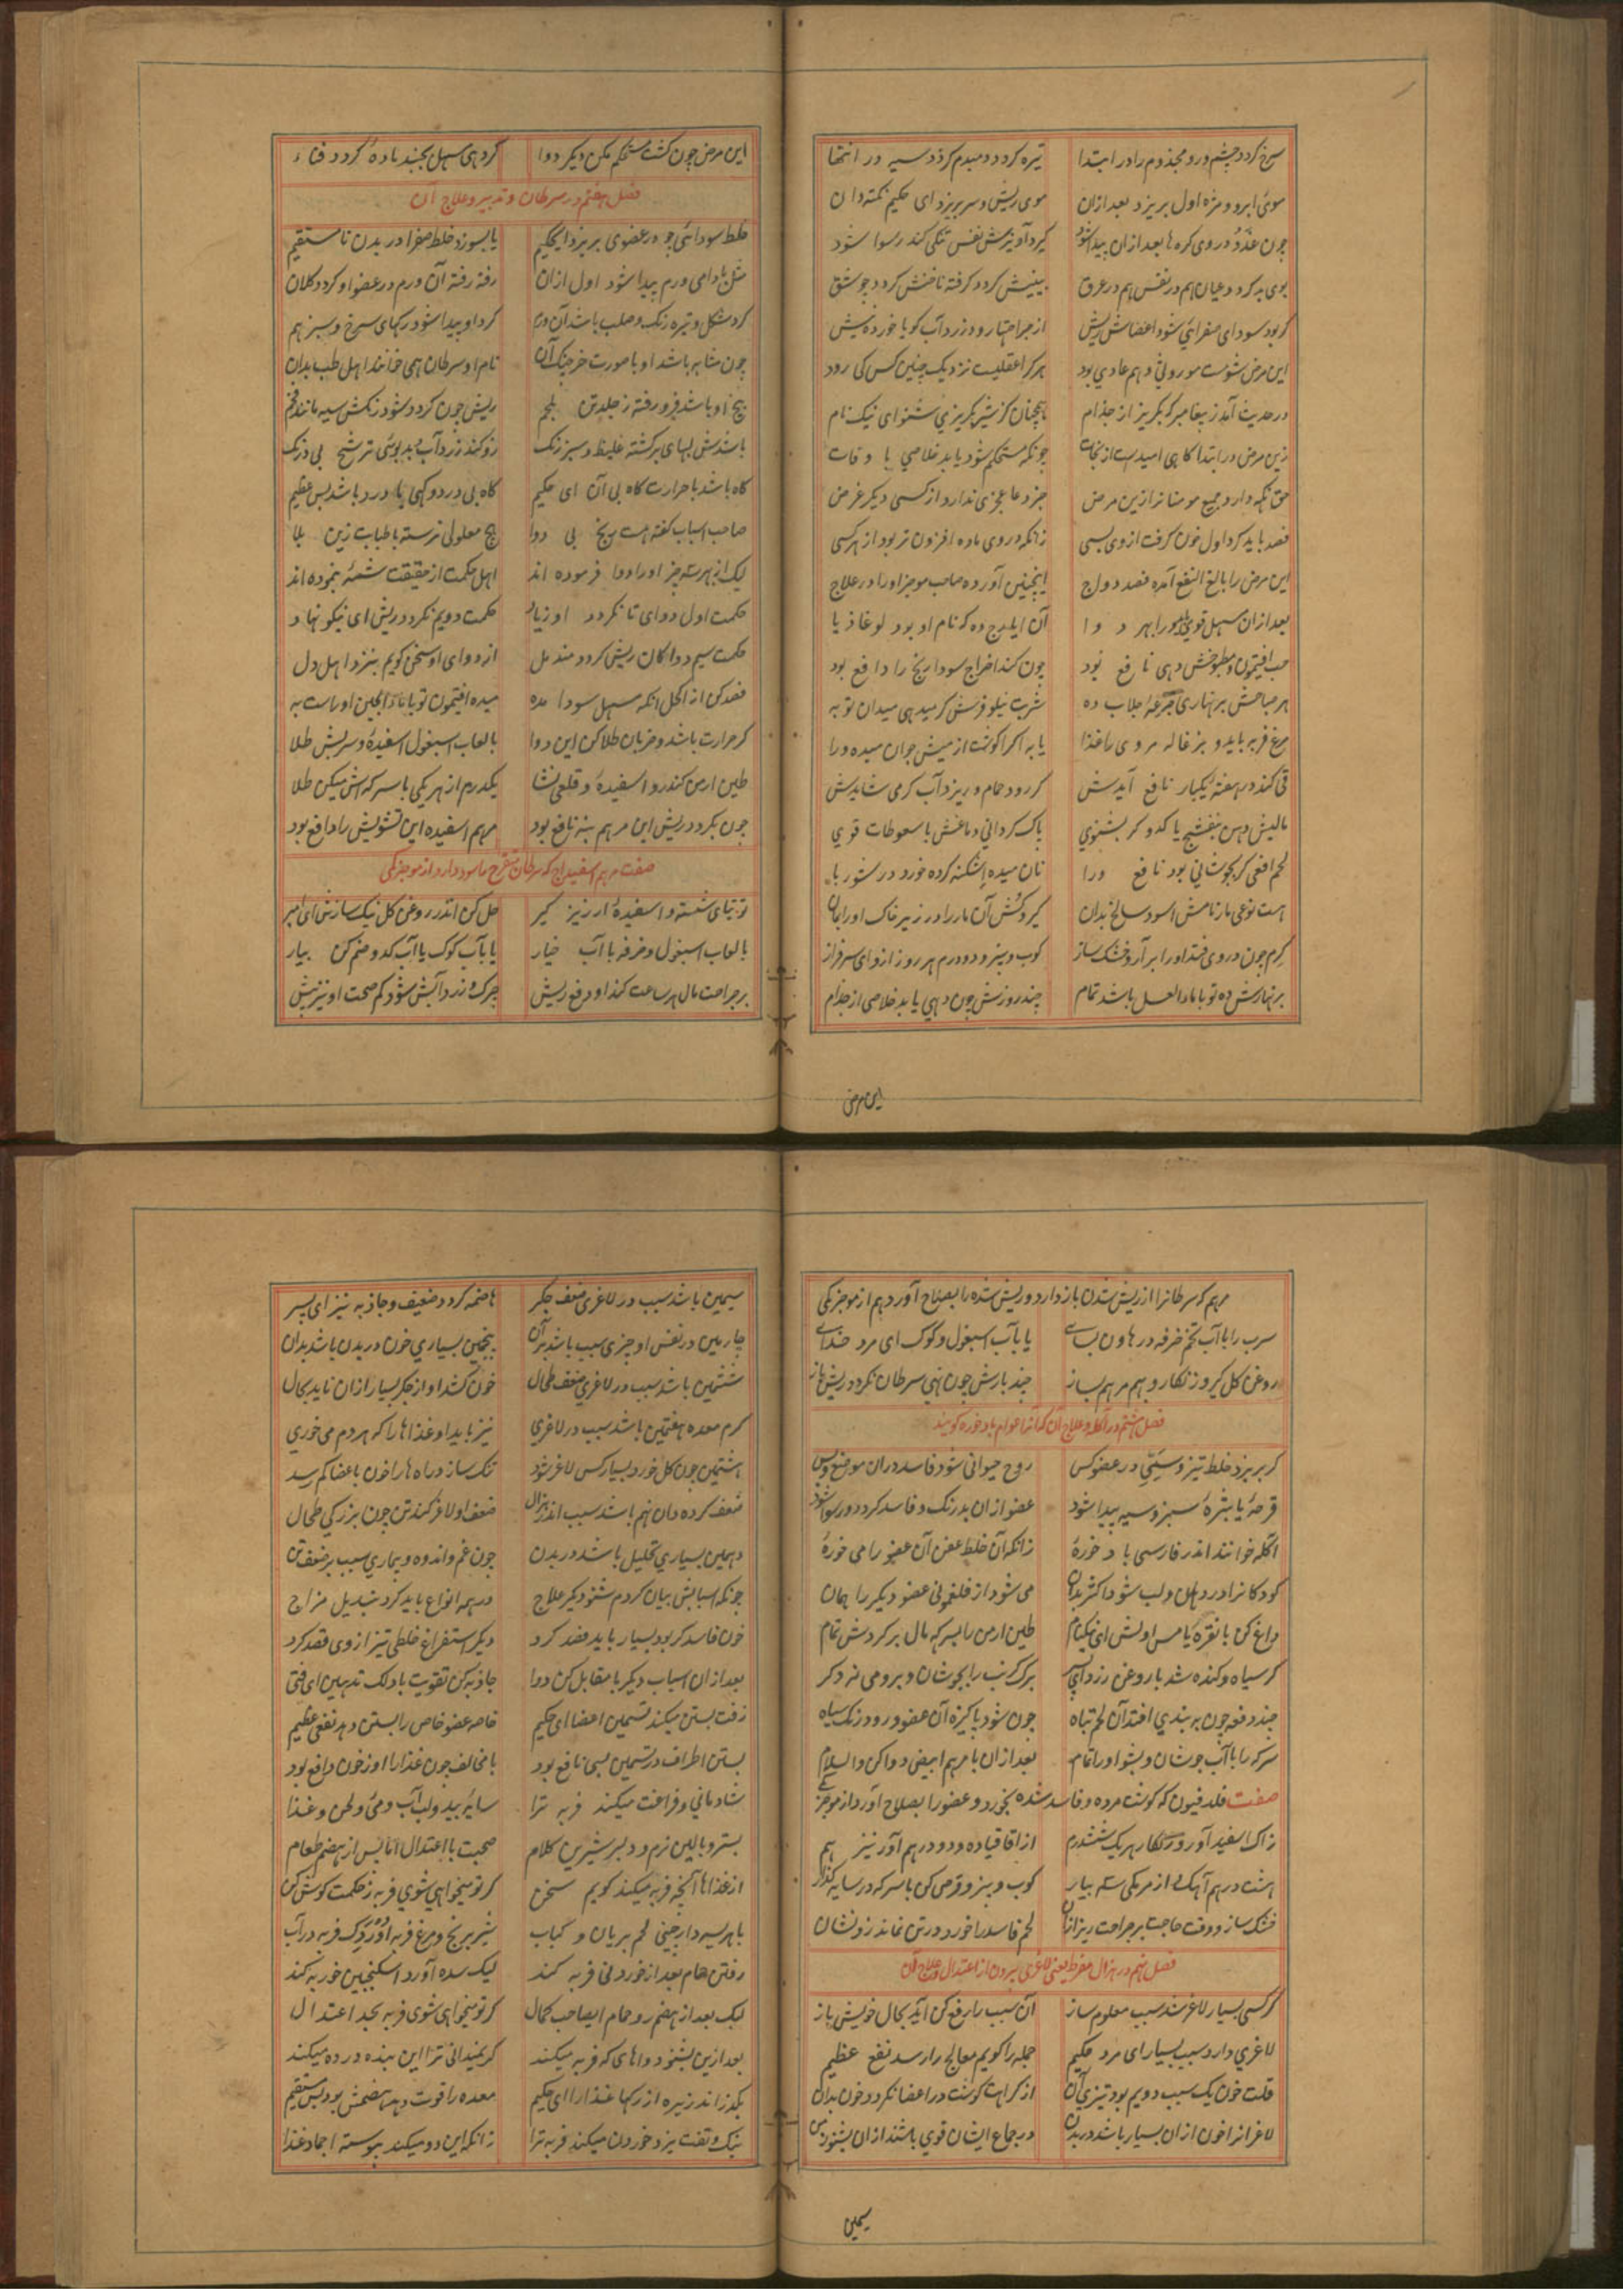 سرخ گردد چشم و رو مجذوم را در ابتدا تیره گردد دمبدم گردد سیه در انتها
موی ابرو و مژه اول بریزد بعد ازان موی ریش و سر بریزد ای حکیم نکته دان
چون غدد در وی گره ها بعد ازان پیدا شود گیرد آوازش نفس تنگی کند رسوا شود
بوی بد گردد عیان هم در نفس هم در عرق بینیش گردد گرفته ناخنش گردد چو شق
گر بود سودای صفرائی شود اعضاش ریش از جراحتها رود زرد آب گویا خورده نیش
این مرض شومست موروثی و هم عادی بود هر کرا عقلیست نزدیک چنین کس کی رود
در حدیث آمد ز پیغامبر که بگریز از جذام همچنان کز شیر بگریزی شنو ای نیک نام
زین مرض در ابتدا گاهی امیدست از نجات چونکه مستحکم شود یابد خلاصی با وفات
حق نگه دارد جمیع مومنانرا زین مرض جز دعا عجزی ندارد از کسی دیگر غرض
فصد باید کرد اول خون گرفت از وی بسی زانکه در وی ماده افزون تر بود از هر کسی
این مرض را بالغ النفع آمده فصد دواج اینچنین آورده صاحب موجز او را در علاج
بعد ازان مسهل قوی ورا بهر دوا آن ایارج ده که نام او بود لوغاذیا
حب افتیمون و مطبوخش دهی نافع بود چون کند اخراج سودا رنج را دافع بود
هر صباحش بر نهاری جرعهٔ جلاب ده شربت نیلوفرش گر میدهی میدان تو به
مرغ فربه باید و بزغاله مر وی را غذا یا به اگر گوشت از میش جوان میده ورا
قی کند در هفته یکبار نافع آیدش گر رود حمام و ریزد آب گرمی شایدش
مالیش دهن بنفشج یا کدو گر بشنوی پاک گردانی دماغش با سعوطات قوی
لحم افعی گر بجوشانی بود نافع ورا نان میده اشکنه کرده خورد در شوربا
هست نوعی مار نامش اسود سالخ بدان گیر و کش آن مار را در زیر خاک اورا بمان
کرم چون در وی فتد او را بر آر و خشک ساز کوب و بیز و دو درم هر روز ازو ای سرفراز
بر نهارش ده تو با ماء العسل باشد تمام چند روزش چون دهی یابد خلاصی از جذام
این مرض
این مرض چون گشت مستحکم مکن دیگر دوا گر دهی مسهل بجنبد ماده گردد فناء
فصل هفتم در سرطان و تدبیر و علاج آن
خلط سودائی چو در عضوی بریزد ایحکیم یا بسوزد خلط صفرا در بدن نا مستقیم
مثل بادامی ورم پیدا شود اول ازان رفته رفته آن ورم در عضو او گردد کلان
گرد شکل و تیره رنگ و صلب باشد آن ورم گرد او پیدا شود رگهای سرخ و سبز هم
چون مشابه باشد او با صورت خرچنگ آن نام او سرطان همی خوانند اهل طب بدان
بیخ او باشد فرو رفته ز جلد تن بلحم ریش چون گردد شود رنگش سیه مانند فحم
باشدش لبهای برگشته غلیظ و سبز رنگ رو کند زرد آب بد بوئی ترشح بی درنگ
گاه باشد با حرارت گاه بی آن ای حکیم گاه بی درد و گهی با درد باشد بس عظیم
صاحب اسباب گفته هست رنج بی دوا هیچ معلولی نرسته با طبابت زین بلا
لیک از بهر سه چیز او را دوا فرموده اند اهل حکمت از حقیقت شمهٔ بنموده اند
حکمت اول دوای تا نگردد او زیاد حکمت دویم نگردد ریش ای نیکو نهاد
حکمت سیم دوا کان ریش گردد مندمل از دوای او سخن گویم بنزد اهل دل
فصد کن از اکحل آنگه مسهل سودا بده میده افتیمون تو با ماء الجبن او راست به
گر حرارت باشد و ضربان طلا کن این دوا با لعاب اسبغول اسفیده و سرکش طلا
طین ارمن کندر و اسفیده و قلعی نشا یکدرم از هر یکی با سرکه اش میکن طلا
چون بگردد ریش این مرهم بنه نافع بود مرهم اسفیده این تشویش را دافع بود
صفت مرهم اسفیداج که سرطان متقرح را سود دارد از موجز مکی
توتیای شسته و اسفیدهٔ ارزیز گیر حل کن اندر روغن گل نیک سازش ای امیر
با لعاب اسبغول و خرفه با آب خیار یا بآب کوک یا آب کدو ضم کن بیار
بر جراحت مال هر ساعت کند او دفع ریش چرک و زرد آبش شود کم صحت او نیز بیش
مرهم که سرطانرا از ریش شدن باز دارد و ریش شده را بصلاح آورد هم از موجز مکی
سرب را با آب تخم خرفه در هاون بسای یا بآب اسبغول و کوک ای مرد خدای
روغن گل گیر و زنگار و بهم مرهم بساز چند بارش چون نهی سرطان نگردد ریش باز
فصل هشتم در آکله و علاج آن که آنرا عوام باد خوره گویند
گر بریزد خلط تیز و سمیی در عضو کس روح حیوانی شود فاسد دران موضع و بس
قرحهٔ یا بثرهٔ سبز و سیه پیدا شود عضو ازان بد رنگ و فاسد گردد و رسوا شود
آکله خوانند اندر فارسی باد خورهٔ زانکه آن خلط عفن آن عضو را می خورهٔ
کودکانرا در دهان و لب شود اکثر بدان می شود از فلغمونی عضو دیگر را همان
داغ کن با نقره یا مس اولش ای نیکنام طین ارمن را بسرکه مال بر گردش تمام
گر سیاه و گنده شد با روغن زرد ای پسر برگ کرنب را بجوشان و برو می نه دگر
چند دفعه چون به بندی افتد آن لحم تباه چون شود پاکیزه آن عضو و رود رنگ سیاه
سرکه را با آب جوشان و بشو او را تمام بعد ازان با مرهم ابیض دوا کن والسلام
صفت فلدفیون که گوشت مرده و فاسد شده بخورد و عضو را بصلاح آورد از موجز مکی
زاک اسفید آور و زنگار هر یک شش درم از اقاقیا ده و دو درهم آور نیز هم
هشت درهم آهک از مرمکی سه بیار کوب و بیز و قرص کن با سرکه در سایه گذار
خشک ساز و وقت حاجت بر جراحت ریز ازان لحم فاسد را خورد در تن نماند زو نشان
فصل نهم در هزال مفرط یعنی لاغری بیرون از اعتدال و علاج آن
گر کسی بسیار لاغر شد سبب معلوم ساز آن سبب را رفع کن آید بحال خویش باز
لاغری دارد سبب بسیار ای مرد حکیم جمله را گویم معالج را رسد نفع عظیم
قلت خون یک سبب دویم بود تیزی آن از کراهت گوشت در اعضا نگردد خون بدان
لاغرانرا خون ازان بسیار باشد در بدن در جماع ایشان قوی باشند ازان بشنو ز من
سیمین
سیمین باشد سبب در لاغری ضعف جگر هاضمه گردد ضعیف و جاذبه نیز ای پسر
چارمین در نفس او چیزی سبب باشد بر آن پنجمین بسیاری خون در بدن باشد بدان
ششمین باشد سبب در لاغری ضعف طحال خون کشد او از جگر بسیار ازان ناید بحال
کرم معده هفتمین باشد سبب در لاغری نیز باید او غذاها را که هر دم می خوری
هشتمین چون گل خورد بسیار کس لاغر شود تنگ سازد راه ها را خون باعضا کم رسد
ضعف گرده دان نهم باشد سبب اندر هزال ضعف او لاغر کند تن چون بزرگی طحال
دهمین بسیاری تحلیل باشد در بدن چون غم و اندوه و بیماری سبب بر ضعف تن
چونکه اسبابش بیان کردم شنو دیگر علاج در همه انواع باید کرد تبدیل مزاج
خون فاسد گر بود بسیار باید فصد کرد دیگر استفراغ خلطی تیز از وی قصد کرد
بعد ازان اسباب دیگر با مقابل کن دوا جاذبه کن تقویت با دلک تدهین ای فتی
زفت بستن میکند تسمین اعضا ای حکیم خاصه عضو خاص را بستن دهد نفعی عظیم
بستن اطراف در تسمین بسی نافع بود با مخالف چون غذا را او ز خون دافع بود
شادمانی و فراغت میکند فربه ترا سایه بید و لب آب و می و لحن و غذا
بستر و بالین نرم و دلبر شیرین کلام صحبت با اعتدال اما پس از هضم طعام
از غذاها آنچه فربه میکند گویم سخن گر تو میخواهی شوی فربه ز حکمت گوش کن
با هریسه دارچینی لحم بریان و کباب شیر برنج و مرغ فربه اردک فربه در آب
رفتن حمام بعد از خوردنی فربه کند لیک سده آورد اسکنجبین خور به کند
لیک بعد از هضم رو حمام ایصاحب کمال گر تو میخواهی شوی فربه بحد اعتدال
بعد ازین بشنو دواهای که فربه میکند گر نمیدانی ترا این بنده در ده میکند
بگذراند زیره از رگها غذا را ای حکیم معده را قوت دهد هضمش بود بس مستقیم
نیک و تفت یزد خوردن میکند فربه ترا زانکه این دو میکند پیوسته اجماد غذا